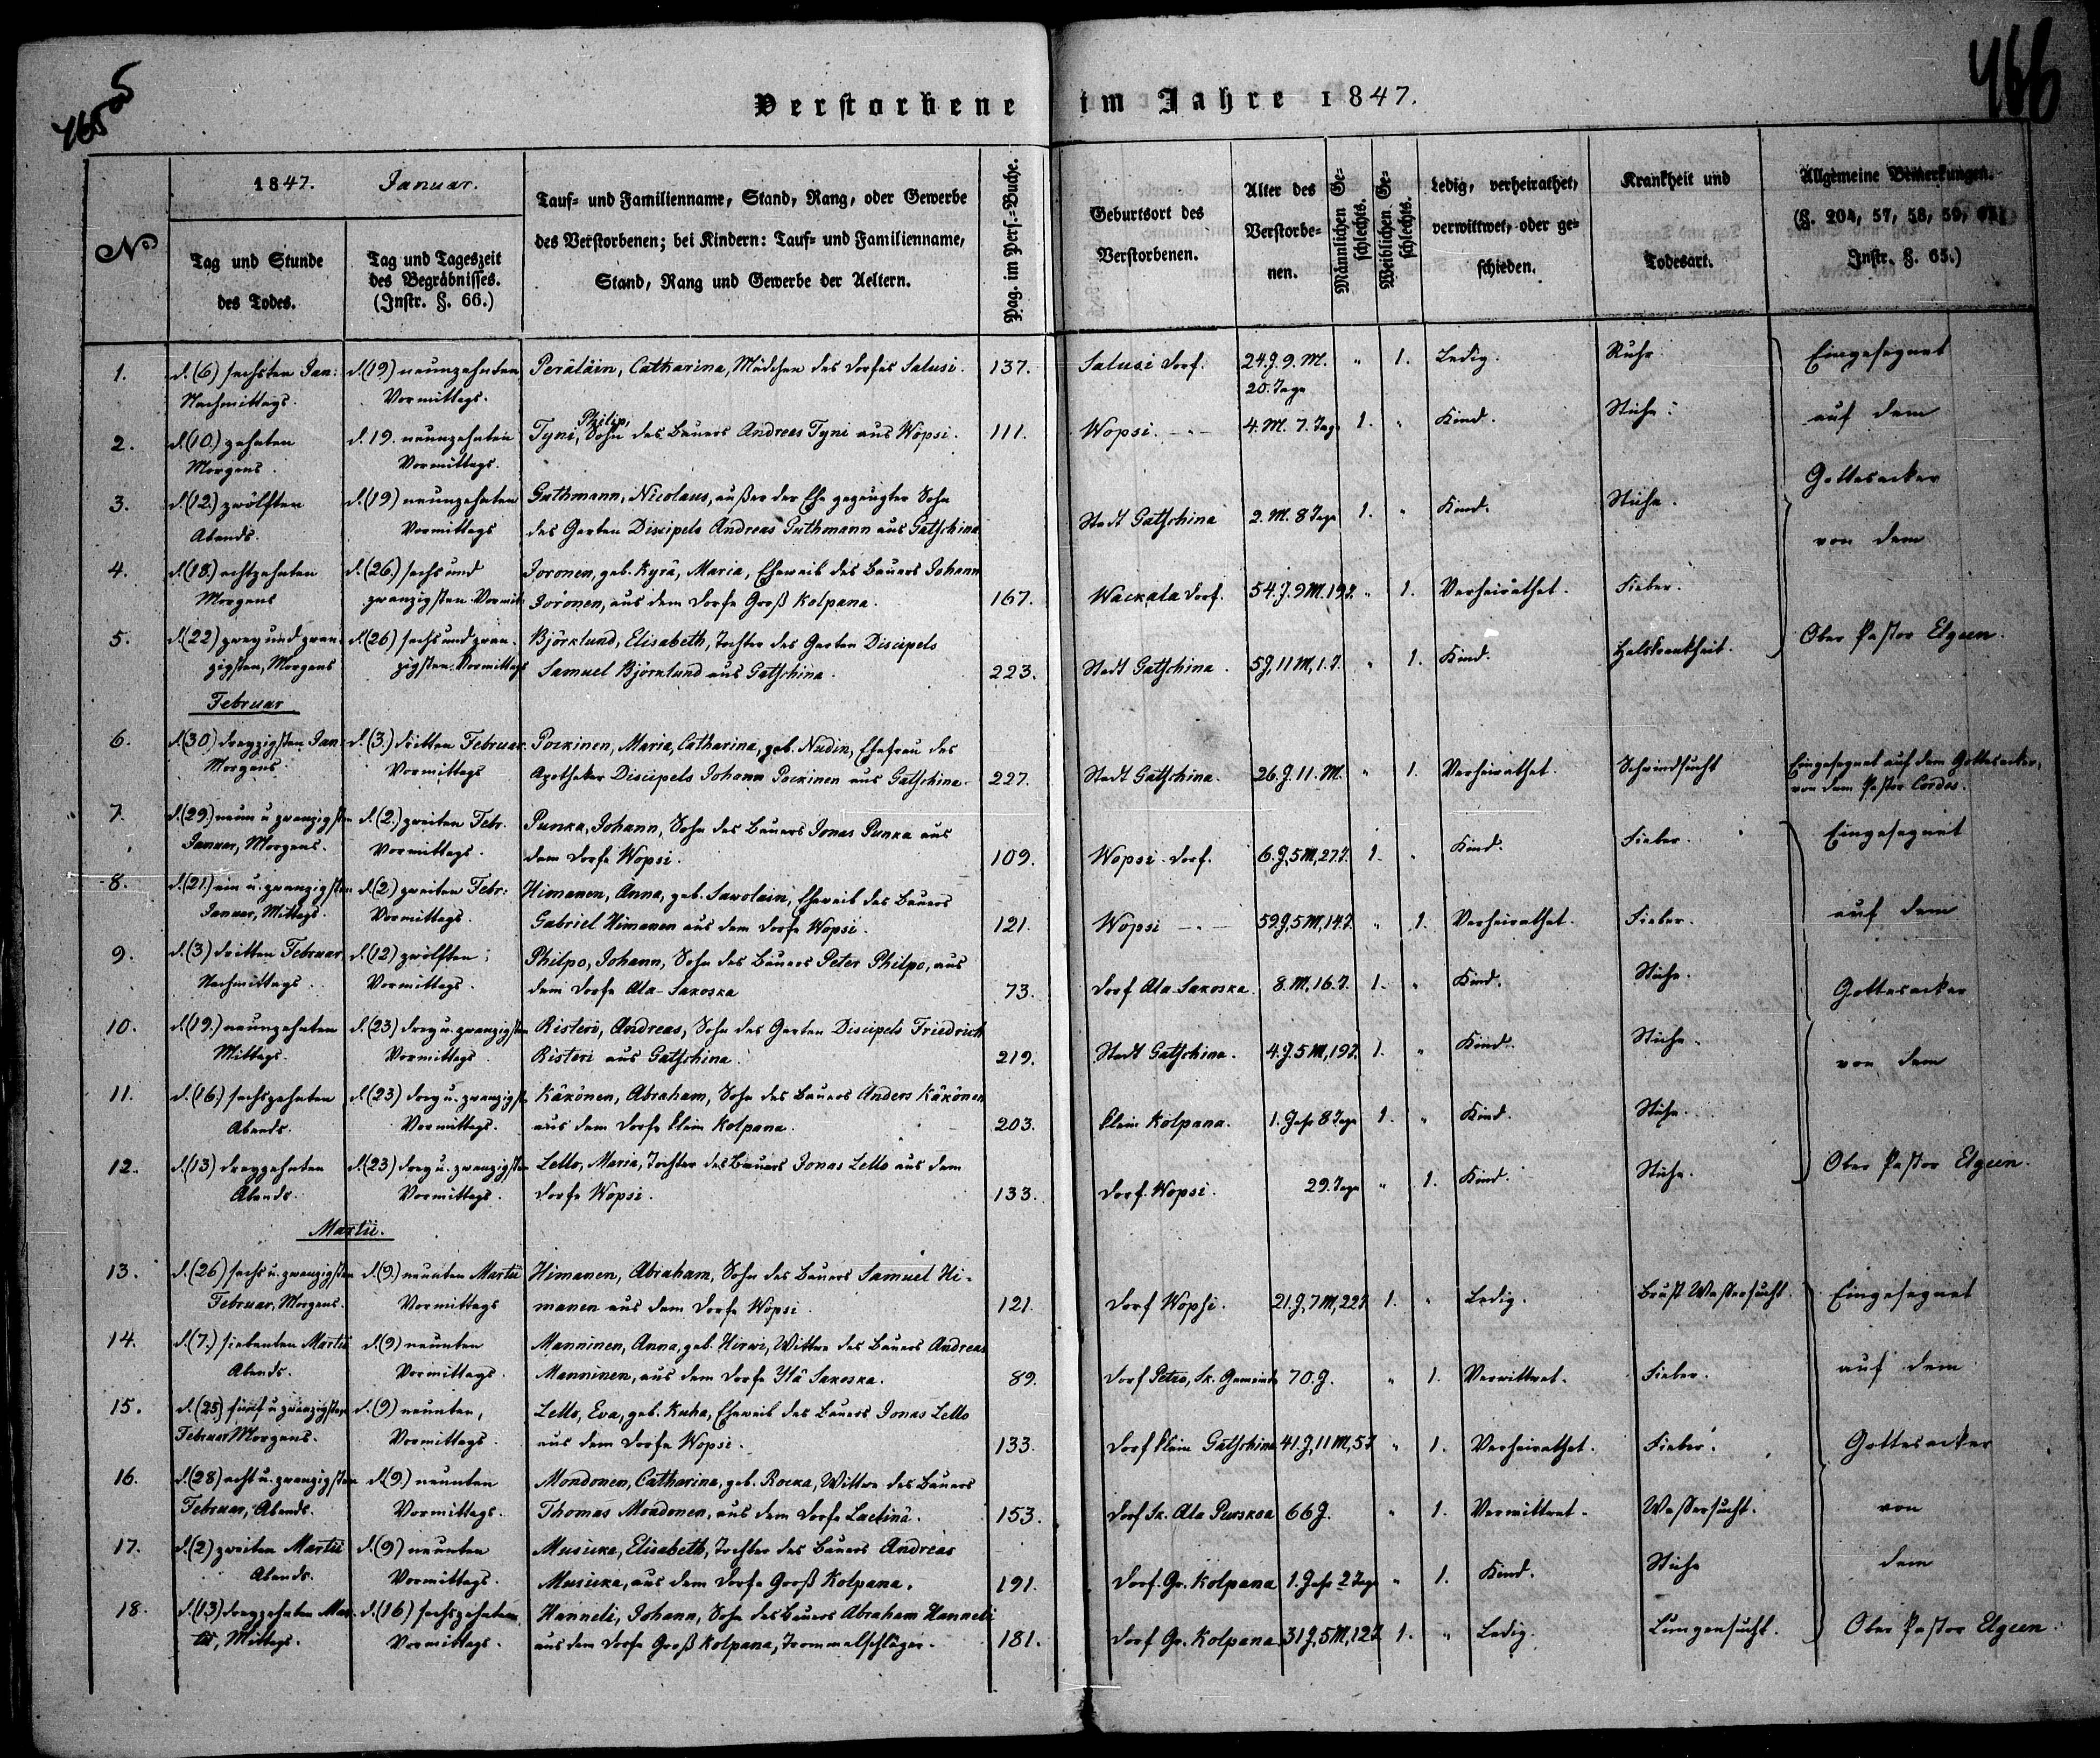 465
466
Verstorbene im Jahre 1847.
No
1847. Januar.
Tag und Stunde des Todes.
Tag und Tageszeit des Begräbnisses. (Instr. §. 66.)
Tauf- und Familienname, Stand, Rang, oder Gewerbe
des Verstorbenen; bei Kindern: Tauf- und Familienname,
Stand, Rang und Gewerbe der Aeltern.
Pag. im Pers.-Buche.
Geburtsort des Verstorbenen.
Alter des Verstorbenen.
Männlichen Geschlechts.
Weiblichen Geschlechts.
Ledig, verheirathet, verwittwet, oder geschieden.
Krankheit und Todesart.
Allgemeine Bemerkungen.
(§. 204, 57, 58, 59,
Instr. §. 65.)
1. d. (6) sechsten Jan: d. (19) neunzehnten Peräläin, Catharina, Mädchen des Dorfes Salusi. 137. Salusi Dorf. 24 J. 9. M. " 1. Ledig. Ruhr. Eingesegnet
Nachmittags. Vormittags. 20. Tage
2. d. (10.) zehnten d. 19. neunzehnten Tyni, Philip, Sohn des Bauers Andreas Tyni aus Wopsi. 111. Wopsi. 4. M. 7. Tage 1. " Kind. Stiche. auf dem
Morgens. Vormittags.
3. d. (12.) zwölften d. (19) neunzehnten Guthmann, Nicolaus, außer der Ehe gezeugter Sohn Gottesacker
Abends. Vormittags des Garten Discipels Andreas Guthmann aus Gatschina Stadt Gatschina 2. M. 8 Tage 1. " Kind. Stiche. von dem
4. d. (18.) achtzehnten d. (26.) sechs und Joronen, geb. Kyrä, Maria, Eheweib des Bauers Johann
Morgens zwanzigsten Vormit: Joronen, aus dem Dorfe Groß Kolpana. 167. Wackala Dorf. 54. J. 9 M. 19 T. " 1. Verheirathet. Fieber.
5. d. (22) zwey und zwan- d. (26) sechs und zwan- Björklund, Elisabeth, Tochter des Garten Discipels Ober Pastor Elgeen.
zigsten, Morgens zigsten Vormittags Samuel Björklund aus Gatschina. 223. Stadt Gatschina. 5 J, 11 M, 1. T. " 1. Kind. Halskrankheit.
Februar
6. d. (30) dreyzigsten Jan: d. (3.) dritten Februar. Pockinen, Maria, Catharina, geb. Nudin, Ehefrau des
Morgens. Vormittags Apotheker Discipels Johann Pockinen aus Gatschina. 227. Stadt Gatschina. 26. J. 11. M. " 1. Verheirathet. Schwindsucht Eingesegnet auf dem Gottesacker,
von dem Pastor Cordes.
7. d. (29.) neun u. zwanzigsten d. (2.) zweiten Febr. Punka, Johann, Sohn des Bauers Jonas Punka aus
Januar, Morgens. Vormittags. dem Dorfe Wopsi. 109. Wopsi Dorf. 6. J, 5 M, 27 T. 1. " Kind. Fieber. Eingesegnet
8. d. (21.) ein u. zwanzigsten d. (2) zweiten Febr: Himanen, Anna, geb. Sawolain, Eheweib des Bauers
Januar, Mittags. Vormittags. Gabriel Himanen aus dem Dorfe Wopsi. 121. Wopsi 59 J, 5 M, 14 T. " 1. Verheirathet. Fieber. auf dem
9. d. (3) dritten Februar d. (12) zwölften; Philpo, Johann, Sohn des Bauers Peter Philpo, aus
Nachmittags. Vormittags. dem Dorfe Ala-Sakoska 73. Dorf Ala-Sakoska. 8. M. 16. T. 1. " Kind. Stiche. Gottesacker
10. d. (19.) neunzehnten d. (23) drey u. zwanzigsten Risteri, Andreas, Sohn des Garten Discipels Friedrich
Mittags. Vormittags. Risteri aus Gatschina. 219. Stadt Gatschina. 4. J. 5 M, 19 T. 1. " Kind. Stiche. von dem
11. d. (16.) sechszehnten d. (23) drey u. zwanzigst Käkönen, Abraham, Sohn des Bauers Anders Käkönen
Abends. Vormittags. aus dem Dorfe Klein Kolpana. 203. Klein Kolpana. 1. Jahr 8 Tage 1. " Kind. Stiche.
12. d. (13) dreyzehnten d. (23) drey u. zwanzigsten Lello, Maria, Tochter des Bauers Jonas Lello aus dem
Abends. Vormittags. Dorfe Wopsi. 133. Dorf. Wopsi. 29. Tage " 1. Kind. Stiche. Ober Pastor Elgeen.
Martii.
13. d. (26) sechs u. zwanzigsten d. (9.) neunten Martii Himanen, Abraham, Sohn des Bauers Samuel Hi-
Februar, Morgens. Vormittags manen aus dem Dorfe Wopsi. 121. Dorf Wopsi. 21. J, 7 M, 22 T. 1. " Ledig. Brust Wassersucht. Eingesegnet
14. d. (7.) siebenten Martii d. (9) neunten Manninen, Anna, geb. Hirwi, Wittwe des Bauers Andreas
Abends. Vormittags. Manninen, aus dem Dorfe Ylä Sakoska. 89. Dorf Petro, Sk. Gemeinde 70. J. " 1. Verwittwet. Fieber. auf dem
15. d. (25) fünf u. zwanzigsten d. (9) neunten, Lello, Eva, geb. Kuha, Eheweib des Bauers Jonas Lello
Februar Morgens. Vormittags. aus dem Dorfe Wopsi. 133. Dorf Klein Gatschina 41 J, 11 M, 5 T " 1. Verheirathet. Fieber. Gottesacker
16. d. (28) acht u. zwanzigsten d. (9) neunten Mondonen, Catharina, geb. Rocka, Wittwe des Bauers
Februar, Abends. Vormittags. Thomas Mondonen, aus dem Dorfe Lactinä. 153. Dorf Sk. Ala Purskoa 66 J. " 1. Verwittwet. Wassersucht. von
17. d. (2) zweiten Martii d. (9) neunten Musicka, Elisabeth, Tochter des Bauers Andreas
Abends. Vormittags. Musicka, aus dem Dorfe Groß Kolpana. 191. Dorf. Gr. Kolpana 1. Jahr 2 Tage " 1. Kind. Stiche dem
18. d. (13) dreyzehnten Mar- d. (16) sechszehnten Hanneli, Johann, Sohn des Bauers Abraham Hanneli
tii, Mittags. Vormittags. aus dem Dorfe Groß Kolpana, Trommelschläger. 181. Dorf Gr. Kolpana 31 J, 5 M, 12 T. 1. " Ledig. Lungensucht. Ober Pastor Elgeen.